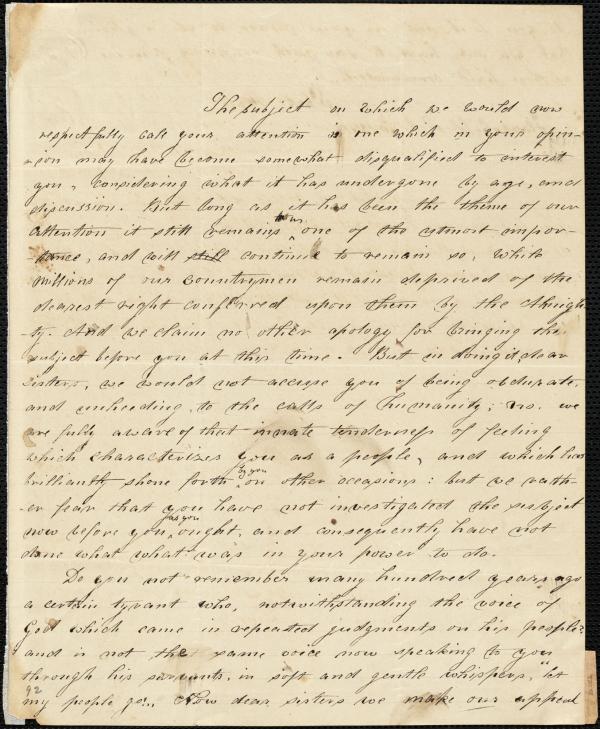 The subject on which we would now
respectfully call your attention is one which in your opin-
-ion may have become somewhat disqualified to interest
you, considering what it has undergone by age, and
discussion. But long as it has been the theme of our
attention it still remains to us one of the utmost impor-
-tance, and will still continue to remain so, while
millions of our countrymen remain deprived of the
dearest right conferred upon them by the Almigh-
-ty. And we claim no other apology for bringing the
subject before you at this time. But in doing it, dear
sisters, we would not accuse you of being obdurate,
and unheeding to the calls of humanity; no. we
are fully aware of that innate tenderness of feeling
which characterizes you as a people, and which has
brilliantly shone forth by you on other occasions: but we rath-
-er fear that you have not investigated the subject
now before you, as you ought, and consequently have not
done what what was in your power to do.
Do you not remember many hundred years ago
a certain tyrant who, notwithstanding the voice of
God which came in repeated judgments on his people?
and is not the same voice now speaking to you
through his servants, in soft and gentle whispers, "let
my people go". Now dear sisters we make our appeal
92